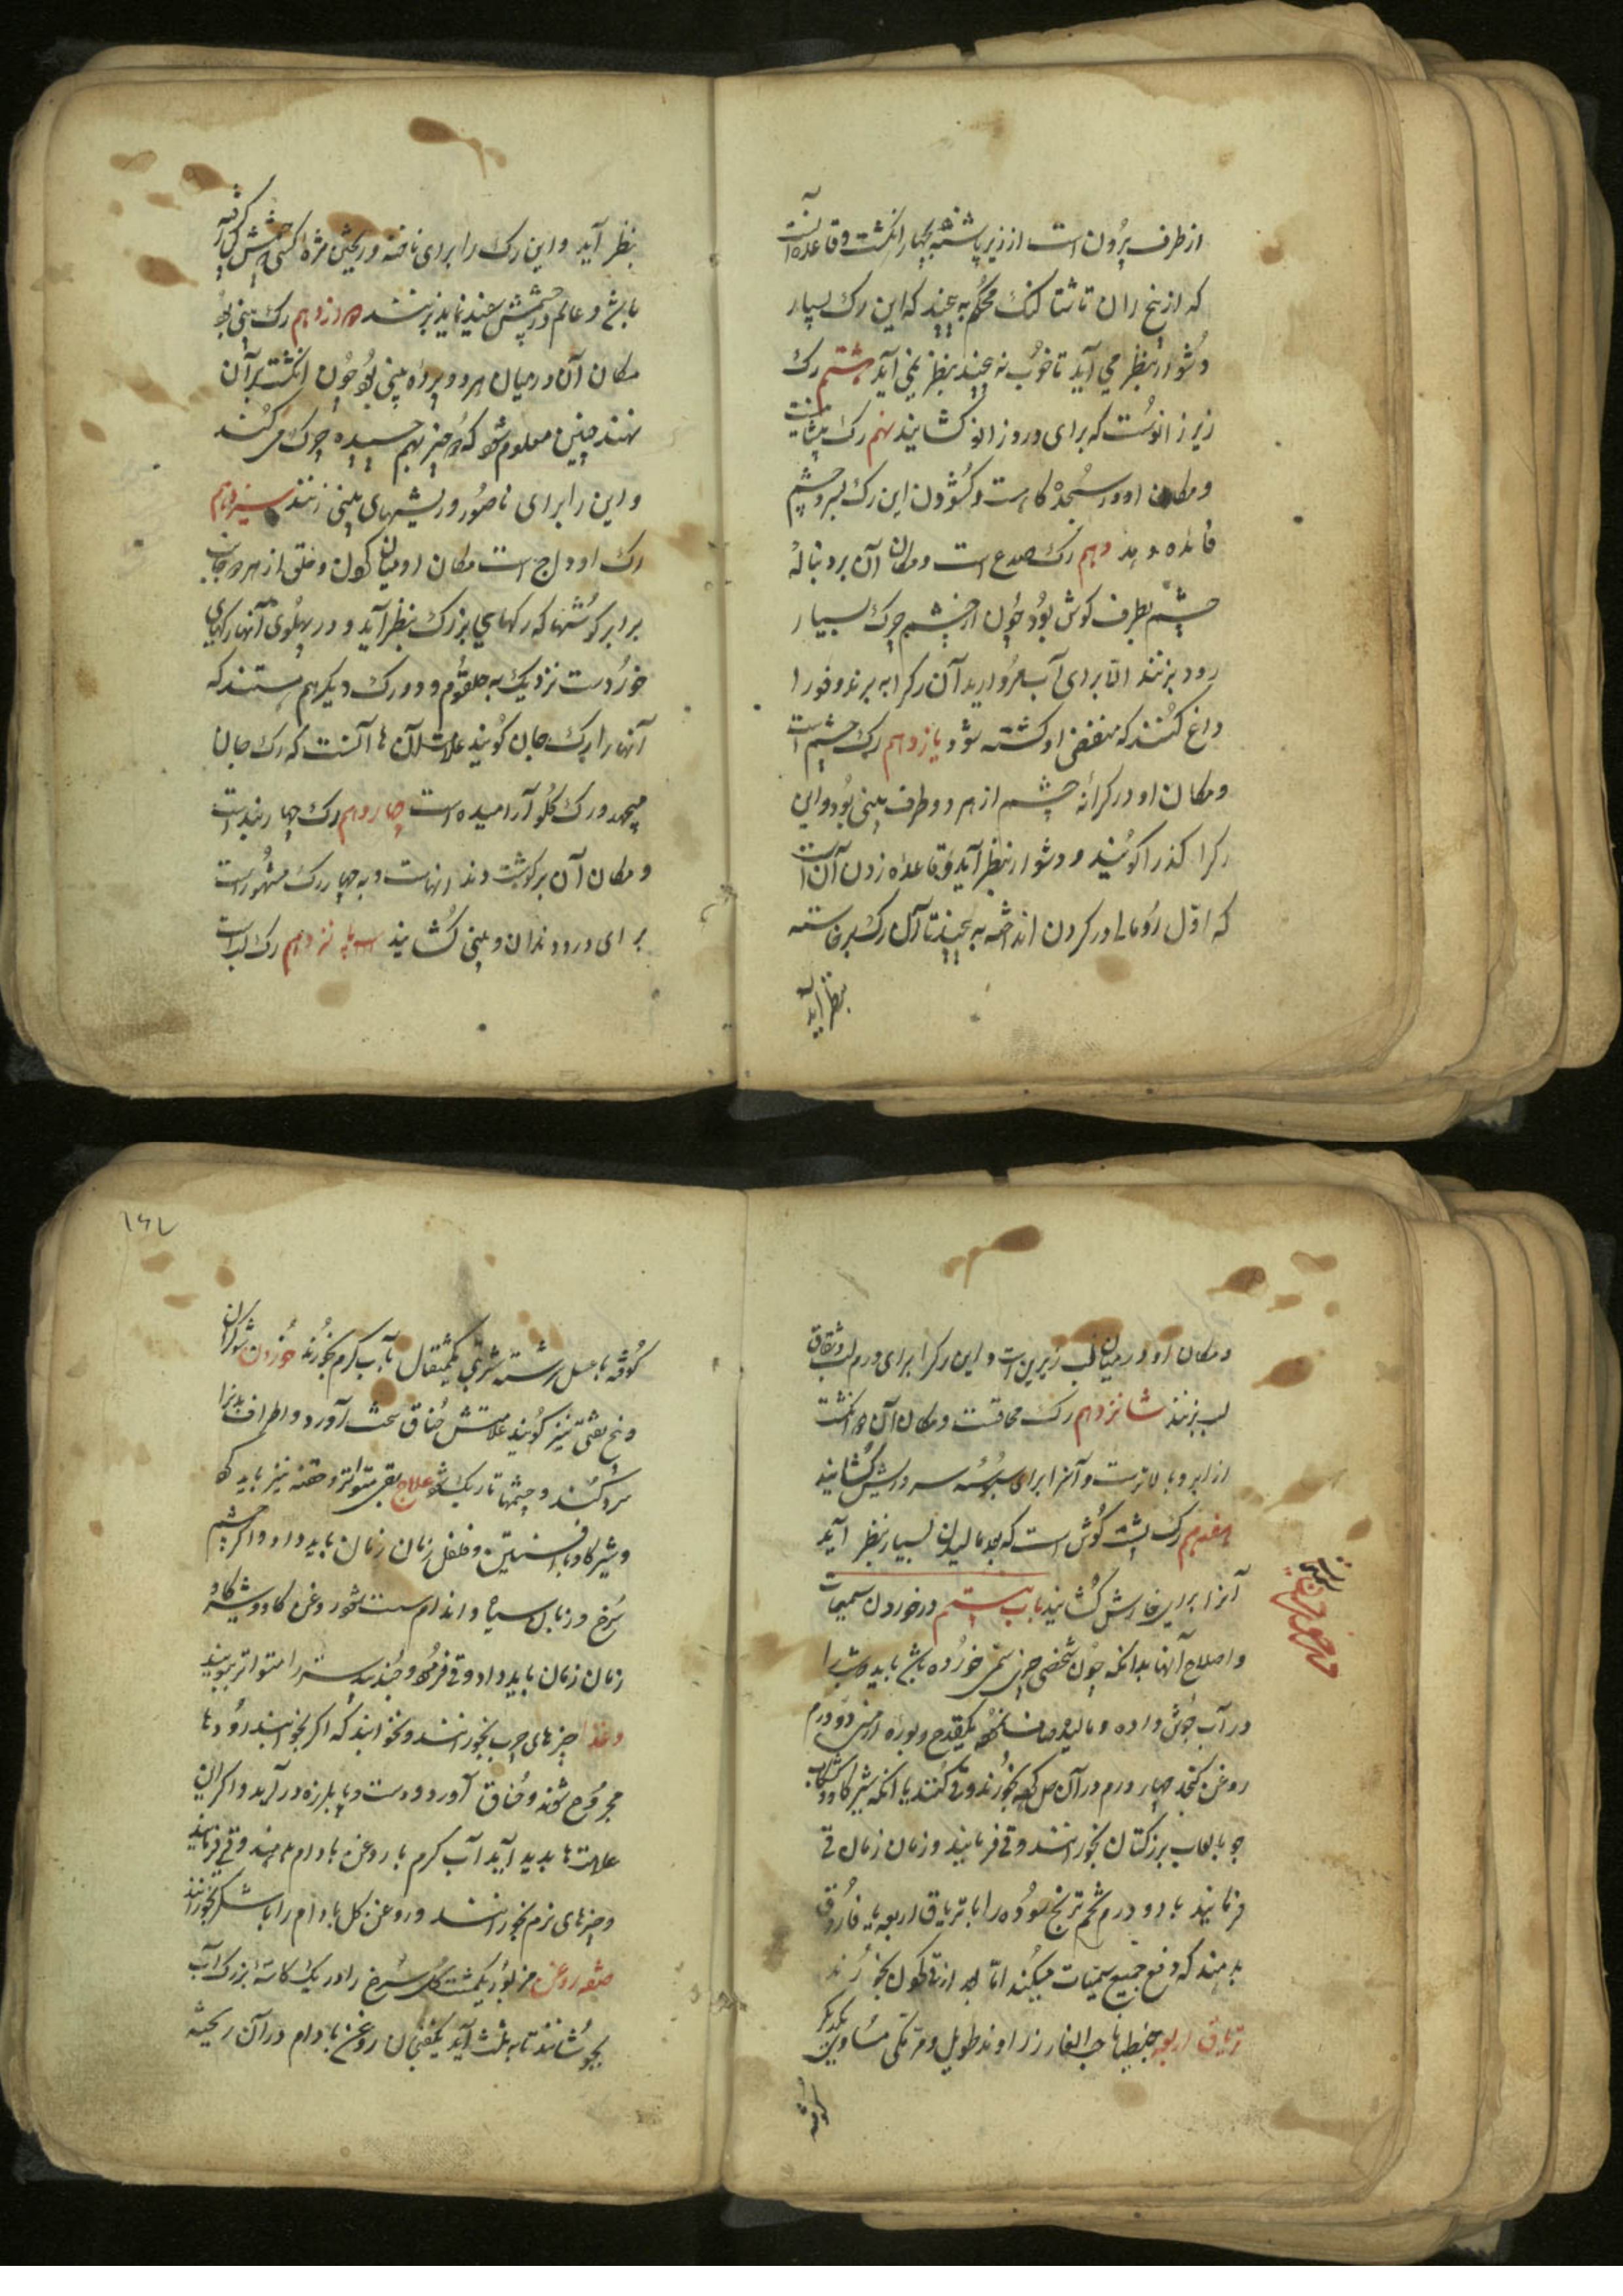 از طرف بیرون است از زیر پاشنه بچهار انگشت و قاعده آنست
که از بیخ ران تا شتالنگ محکم به پیچند که این رگ بسیار
دشوار بنظر می آید تا خوب نه پیچند بنظر نمی آید هشتم رگ
زیر زانوست که برای درد زانو کشایند نهم رگ
و مکان او در سجده گاهست و کشودن این رگ بسر و چشم
فائده دهد دهم رگ صدغ است و مکان آن بر دنباله
چشم بطرف گوش بود چون از چشم چرک بسیار
رود بزنند اما برای آب مروارید آن رگ را به برند و فورا
داغ کنند که منفض او کشته شود یازدهم رگ چشم است
و مکان او در کرانه چشم از هر دو طرف بینی بود و این
رگرا گویند و دشوار بنظر آید و قاعده زدن آن آنست
که اول رومال در گردن انداخته به پیچند تا آن رگ برخاسته
بنظر آید
بنظر آید و این رگ را برای ناخنه و ریختن مژه و کسی که چشمش گرفته
باشد و عالم در چشمش سفید نماید بزنند دوازدهم رگ بینی بود
مکان آن در میان هر دو پره بینی بود چون انگشت بر آن
نهند چنین معلوم شود که دو چیز بهم چسپیده حرکت می کنند
و این را برای ناصور و ریشهای بینی زنند سیزدهم
رگ اوداج است مکان او میان گردن و حلق از هر دو جانب
برابر گوشها که رگهای بزرگ بنظر آید و در پهلوی آنها رگهای
خوردست نزدیک به حلقوم و دو رگ دیگر هم هستند که
آنها را رگ جان گویند علامت آن ها آنست که رگ جان
میجهد و رگ گلو آرامیده است چهاردهم رگ چهار بند است
و مکان آن بر گوشت دندانهاست و به چهار رگ مشهور است
برای درد دندان و بینی کشایند پانزدهم رگ لب است
و مکان او در میان لب زیرین است و این رگرا برای ورم لب و شقاق
لب بزنند شانزدهم رگ و مکان آن دو انگشت
از ابرو بالاترست و آنرا برای سبوسه سر و ریش کشایند
هفدهم رگ پشت گوش است که بعد مالیدن بسیار بنظر آید
آنرا برای خارش کشایند باب بیستم در خوردن سمیات
و اصلاح آنها بدانکه چون شخصی چیزی سمی خورده باشد باید شبت را
در آب جوش داده و مالیده صاف نموده یکقدح و بوره ارمنی دو درم
روغن کنجد چهار درم در آن حل کرده بخورند و قی کنند یا آنکه شیر گاو و کشکاب
جو با لعاب بزر کتان بخورانند و قی فرمایند و زمان زمان قی
فرمایند یا دو درم تخم ترنج سوده را با تریاق اربعه یا فاروق
بدهند که دفع جمیع سمیات میکند اما بعد از قی کردن بخورند
تریاق اربعه جنطیانا حب الغار زراوند طویل و مر مکی مساوی یکدیگر
کوفته
۱۶۷
کوفته با عسل سرشته شربتی یکمثقال با آب گرم بخورند خوردن شوکران
و بیخ تفتی نیز گویند علامتش خناق سخت آورد و اطراف بدن را
سرد کند و چشمها تاریک شود علاج بقی متواتر و حقنه نیز باید کرد
و شیر گاو با افسنتین و فلفل زمان زمان باید داد و اگر چشم
سرخ و زبان سیاه و اندام سست شود روغن گاو و شیر گاو
زمان زمان باید داد و قی فرموده و جندبیدستر را متواتر ببویند
و غذا چیزهای چرب بخورانند و نخوابند که اگر بخوابند روده ها
مجروح شوند و خناق آورد و دست و پا بلرزه در آید و اگر این
علامت ها پدید آید آب گرم با روغن بادام دهند و قی فرمایند
و چیزهای نرم بخورانند و روغن گل بادام را با شکر بخورانند
صفت روغن مزبور یکمشت گل سرخ را در یک کاسه بزرگ آب
بجوشانند تا به ثلث آید یکفنجان روغن بادام در آن ریخته